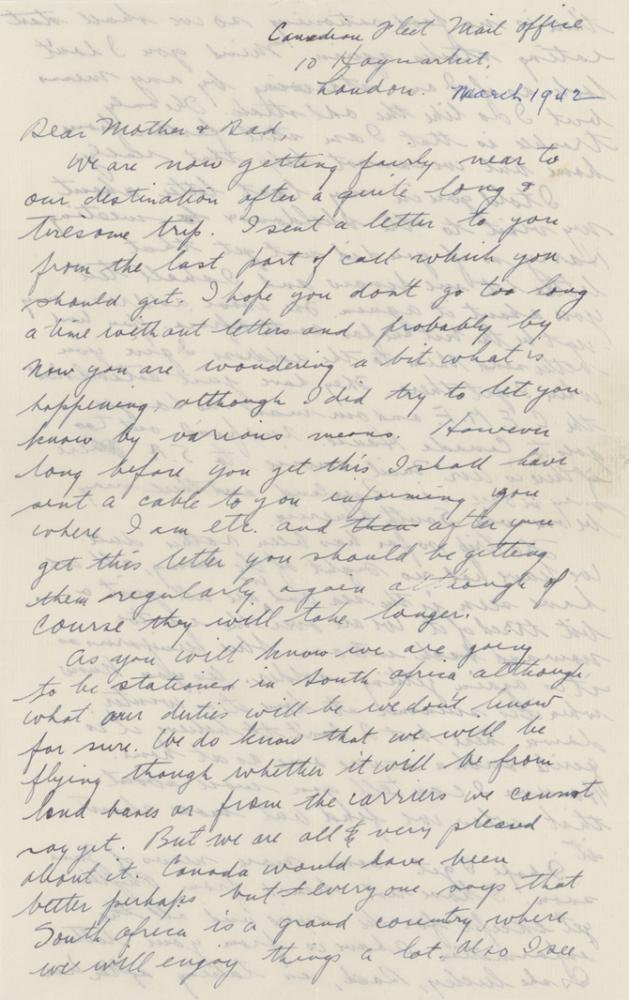 Canadian Fleet Mail Office
10 Haymarket,
London. March 1942
Dear Mother & Dad,
We are now getting fairly near to
our destination after a quite long &
tiresome trip. I sent a letter to you
from the last port of call which you
should get. I hope you don't go too long
a time without letters and probably by
now you are wondering a bit what is
happening, although I did try to let you
know by various means. However
long before you get this I shall have
sent a cable to you informing you
where I am etc. and then after you
get this letter you should be getting
them regularly again although of
course they will take longer.
As you will know we are going
to be stationed in South Africa although
what our duties will be we don't know
for sure. We do know that we will be
flying though whether it will be from
land bases or from the carriers we cannot
say yet. But we are all very pleased
about it. Canada would have been
better perhaps but everyone says that
South Africa is a grand country where
we will enjoy things a lot. Also I see